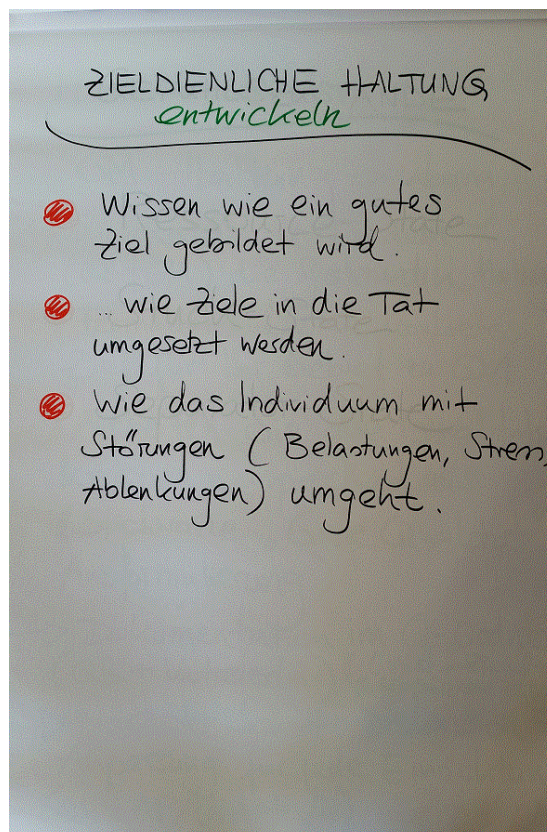 ZIELDIENLICHE HALTUNG
entwickeln
Wissen wie ein gutes
Ziel gebildet wird.
... wie Ziele in die Tat
umgesetzt werden.
Wie das Individuum mit
Störungen (Belastungen, Stress,
Ablenkungen) umgeht.